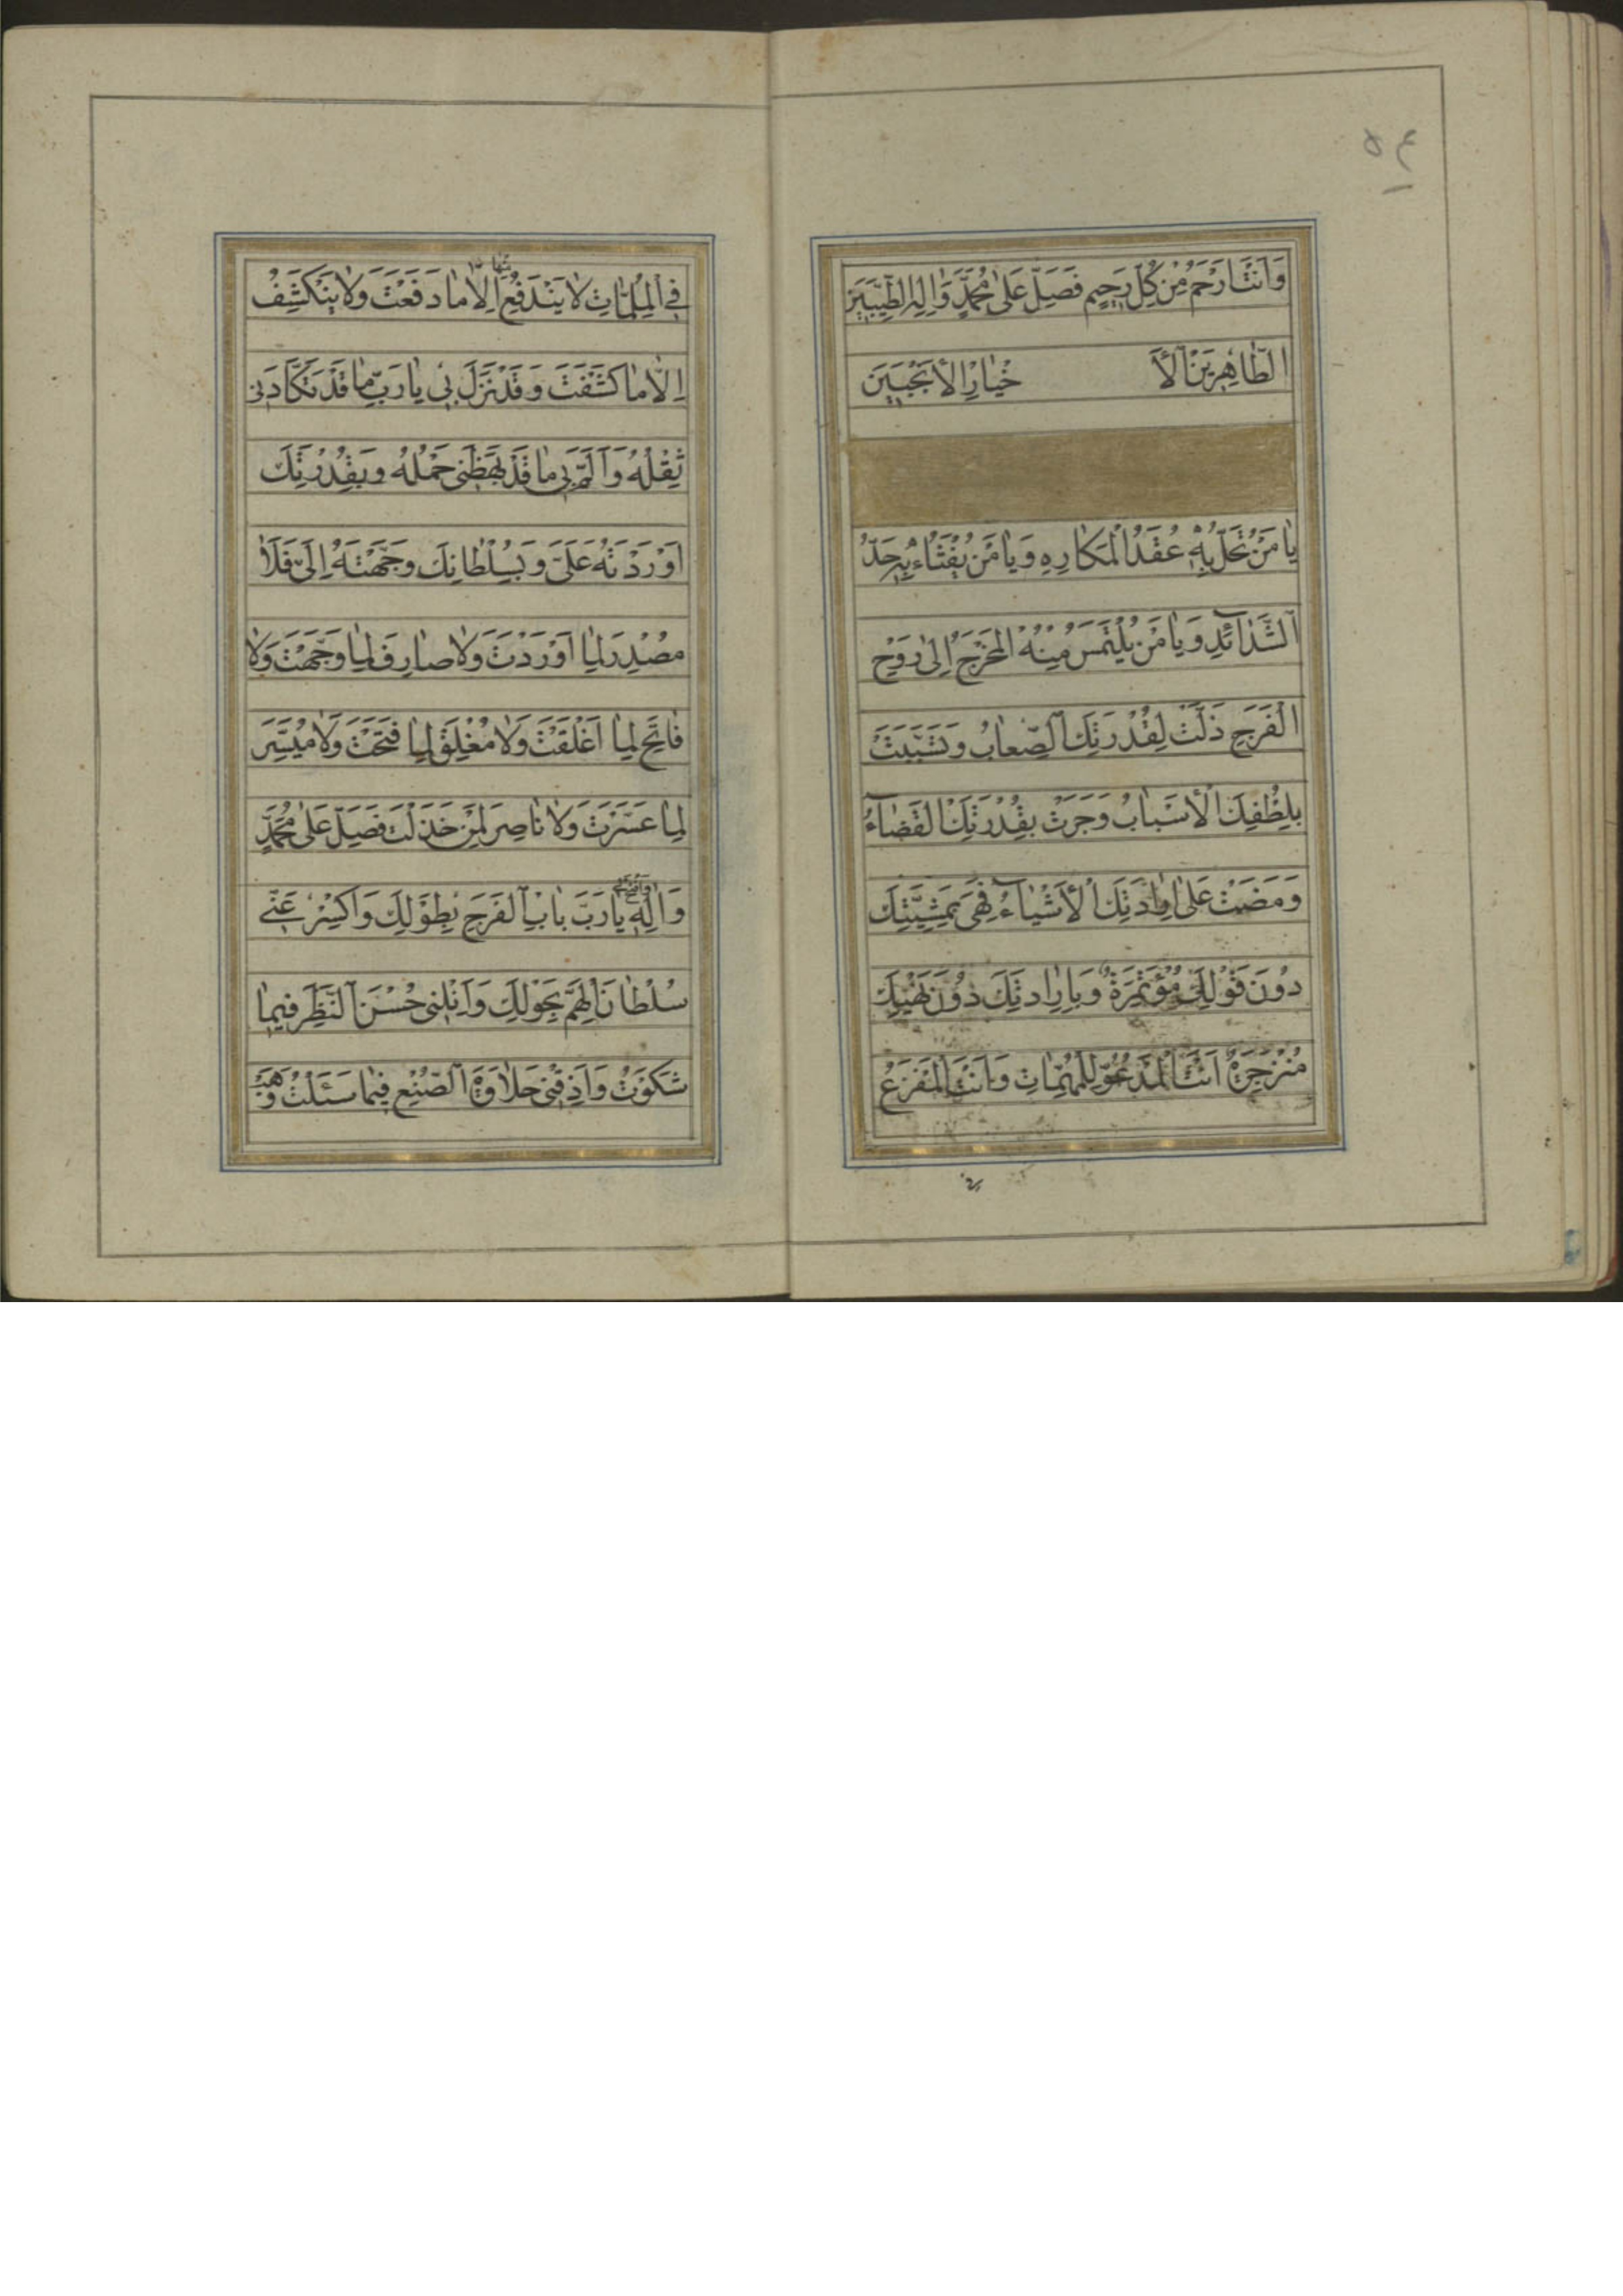 ٥٤
وَاَنْتَ اَرْحَمُ مِنْ كُلِّ رَحيمٍ فَصَلِّ عَلىٰ مُحَمَّدٍ وَاٰلِهِ الطَّيِّبينَ
الطّاهِرينَ الْاَخْيارِ الْاَنْجَبينَ
يا مَنْ تُحَلُّ بِهِ عُقَدُ الْمَكارِهِ وَيا مَنْ يُفْثَاءُ بِهِ حَدُّ
الشَّدآئِدِ وَيا مَنْ يُلْتَمَسُ مِنْهُ الْمَخْرَجُ اِلىٰ رَوْحِ
الْفَرَجِ ذَلَّتْ لِقُدْرَتِكَ الصِّعابُ وَتَسَبَّبَتْ
بِلُطْفِكَ الْاَسْبابُ وَجَرَتْ بِقُدْرَتِكَ الْقَضآءُ
وَمَضَتْ عَلىٰ اِرادَتِكَ الْاَشْيآءُ فَهِيَ بِمَشِيَّتِكَ
دُونَ قَوْلِكَ مُؤْتَمِرَةٌ وَبِاِرادَتِكَ دُونَ نَهْيِكَ
مُنْزَجِرَةٌ اَنْتَ الْمَدْعُوُّ لِلْمُهِمّاتِ وَاَنْتَ الْمَفْزَعُ
فِي الْمُلِمّاتِ لا يَنْدَفِعُ مِنْها اِلّا ما دَفَعْتَ وَلا يَنْكَشِفُ
اِلّا ما كَشَفْتَ وَقَدْ نَزَلَ بي يا رَبِّ ما قَدْ تَكَأَّدَني
ثِقْلُهُ وَاَلَمَّ بي ما قَدْ بَهَظَني حَمْلُهُ وَبِقُدْرَتِكَ
اَوْرَدْتَهُ عَلَيَّ وَبِسُلْطانِكَ وَجَّهْتَهُ اِلَيَّ فَلا
مُصْدِرَ لِما اَوْرَدْتَ وَلا صارِفَ لِما وَجَّهْتَ وَلا
فاتِحَ لِما اَغْلَقْتَ وَلا مُغْلِقَ لِما فَتَحْتَ وَلا مُيَسِّرَ
لِما عَسَّرْتَ وَلا ناصِرَ لِمَنْ خَذَلْتَ فَصَلِّ عَلىٰ مُحَمَّدٍ
وَاٰلِهِ وَافْتَحْ لي يا رَبِّ بابَ الْفَرَجِ بِطَوْلِكَ وَاكْسِرْ عَنّي
سُلْطانَ الْهَمِّ بِحَوْلِكَ وَاَنِلْني حُسْنَ النَّظَرِ فيما
شَكَوْتُ وَاَذِقْني حَلاوَةَ الصُّنْعِ فيما سَئَلْتُ وَهَبْ